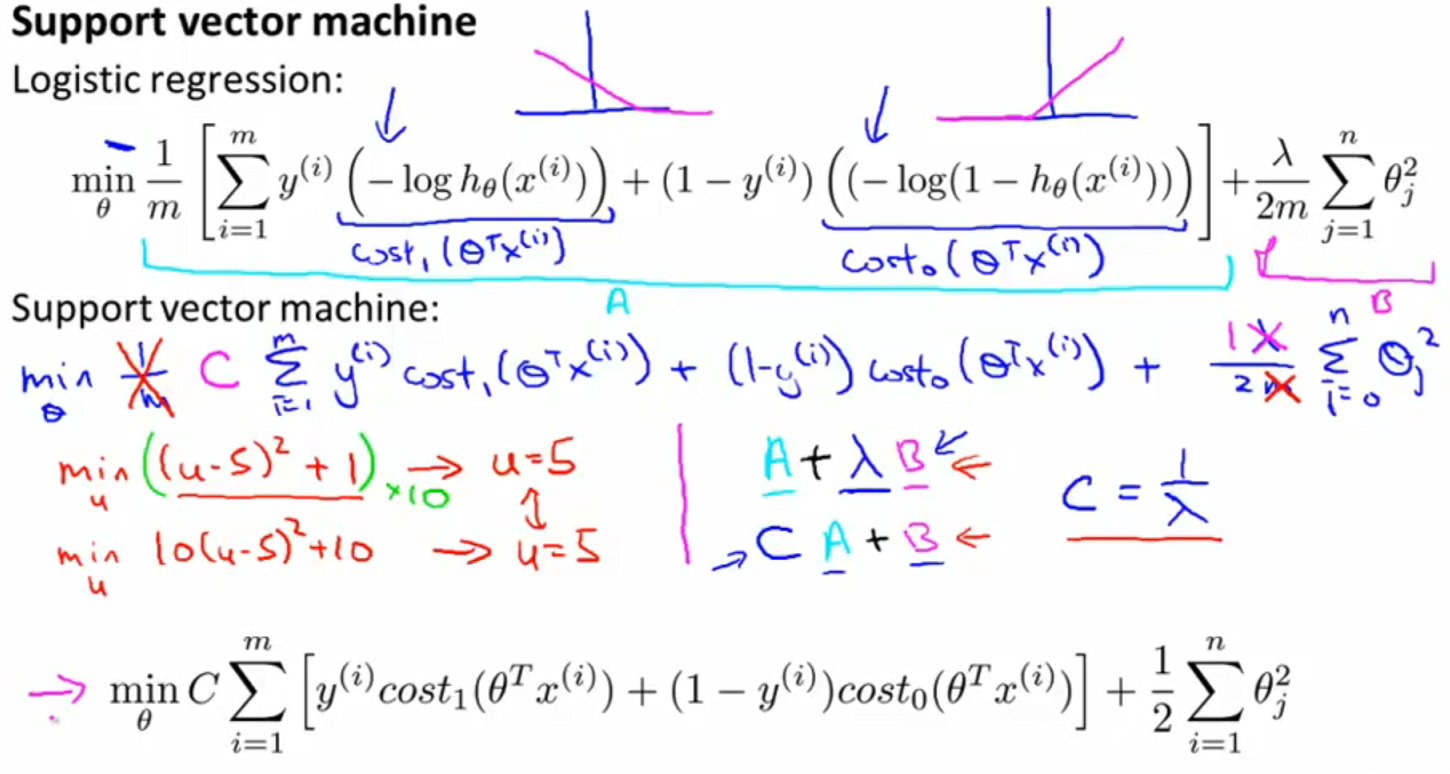 Support vector machine
Logistic regression:
min_θ 1/m [ ∑_{i=1}^{m} y^{(i)} (−log h_θ(x^{(i)})) + (1 − y^{(i)}) ((−log(1 − h_θ(x^{(i)}))) ] + λ/2m ∑_{j=1}^{n} θ_j^2
cost_1(θ^T x^{(i)}) cost_0(θ^T x^{(i)})
A B
Support vector machine:
min_θ 1/m C ∑_{i=1}^{m} y^{(i)} cost_1(θ^T x^{(i)}) + (1-y^{(i)}) cost_0(θ^T x^{(i)}) + 1 λ/2m ∑_{i=0}^{n} θ_j^2
min_u ((u-5)^2 + 1) ×10 → u=5
A + λ B ←
C = 1/λ
min_u 10(u-5)^2+10 → u=5
→ C A + B ←
→ min_θ C ∑_{i=1}^{m} [ y^{(i)} cost_1(θ^T x^{(i)}) + (1 − y^{(i)}) cost_0(θ^T x^{(i)}) ] + 1/2 ∑_{i=1}^{n} θ_j^2